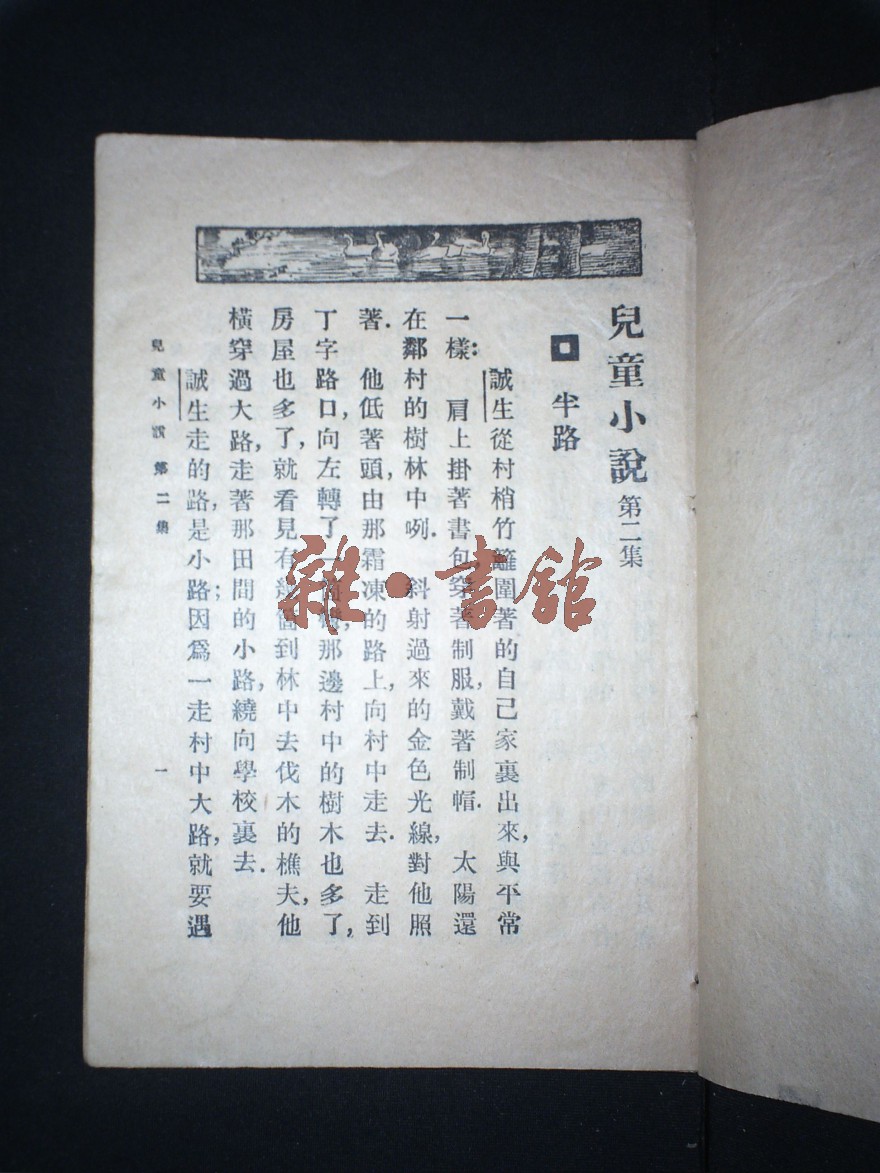 兒童小說 第二集
半路
誠生從村梢竹籬圍著的自己家裏出來,與平常
一樣:肩上掛著書包,穿著制服,戴著制帽.太陽還
在鄰村的樹林中咧.斜射過來的金色光線,對他照
著.他低著頭,由那霜凍的路上,向村中走去.走到
丁字路口,向左轉了一那邊村中的樹木也多了,
房屋也多了,就看見有到林中去伐木的樵夫,他
橫穿過大路,走著那田間的小路,繞向學校裏去.
誠生走的路,是小路;因爲一走村中大路,就要遇
兒童小說 第二集
一
雜·書館